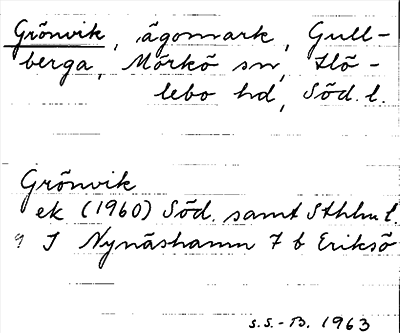 Grönvik, ägomark, Gull-
berga, Mörkö sn, Hö-
lebo hd, Söd. l.
Grönvik
ek (1960) Söd. samt Sthlm l.
9 I Nynäshamn 7 b Eriksö
S.S.-B. 1963